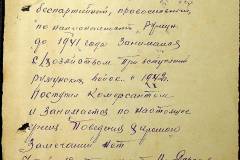 беспартийный, православный,
"по национальности Румын
до 1941 года Занимался
С/хозяйством При вступлении
румынских войск в 1942
Поступил Комерсантом
и Занимается по настоящее
время. Поведения хорошей
Замечаний Нет